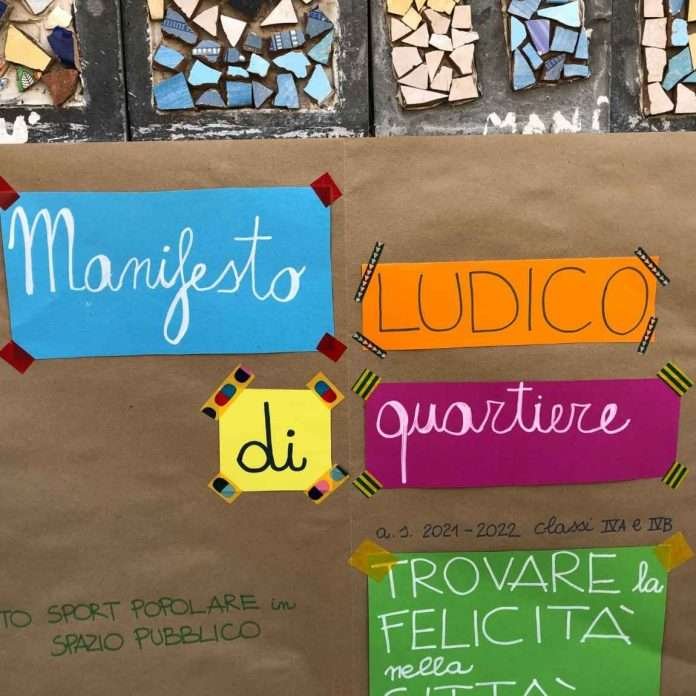 MANI
Manifesto
LUDICO
di
quartiere
a.s. 2021-2022 classi IVA e IVB
TO SPORT POPOLARE in
SPAZIO PUBBLICO
TROVARE la
FELICITÀ
nella
CITTÀ